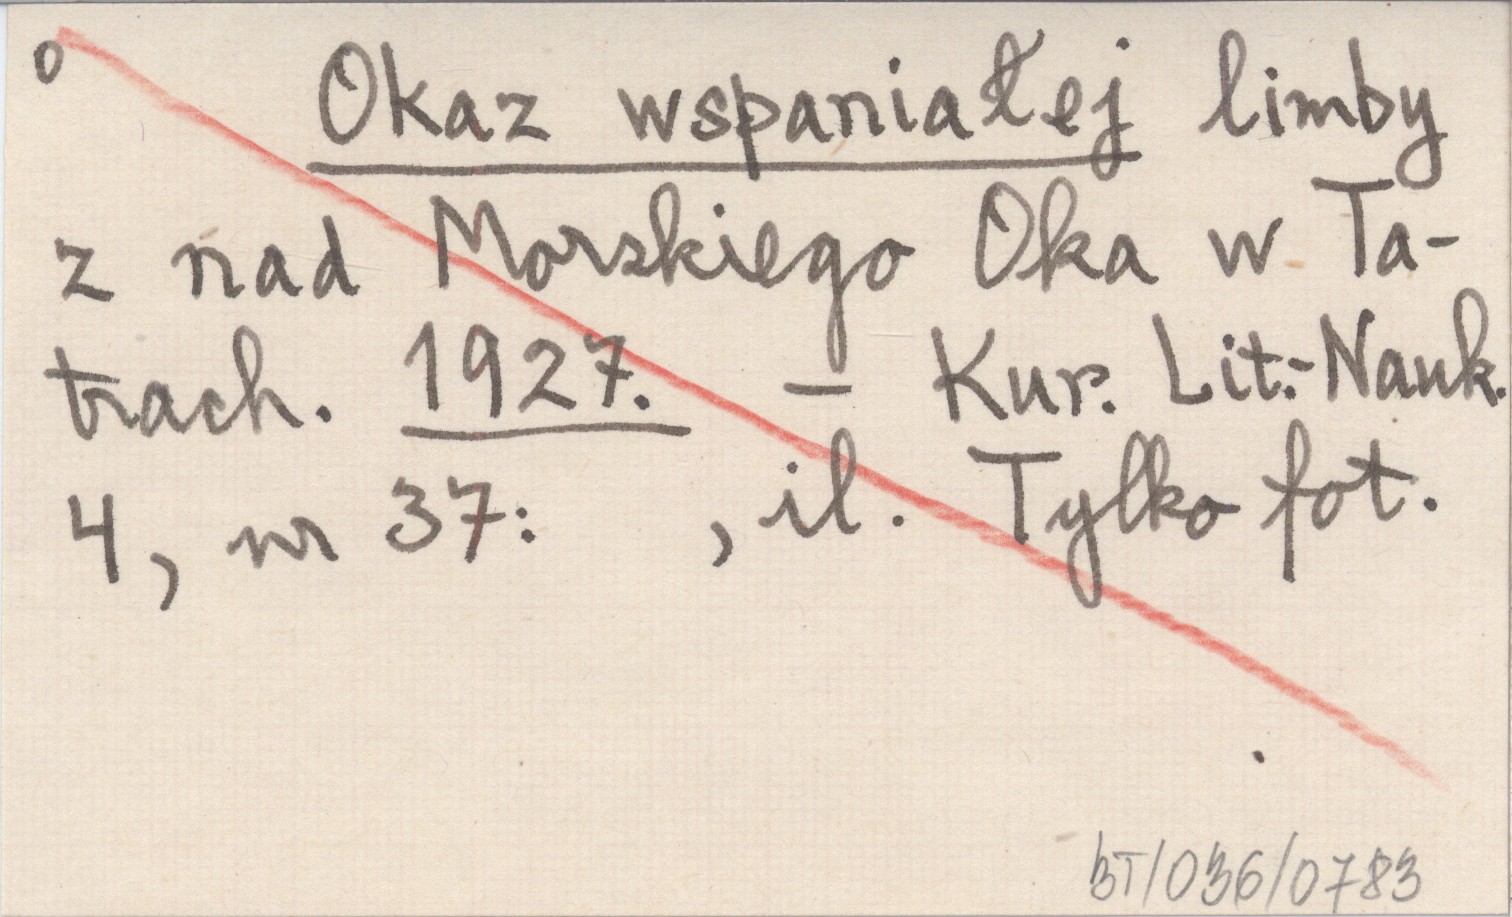 o Okaz wspaniałej limby
z nad Morskiego Oka w Ta-
trach. 1927. – Kur. Lit.-Nauk.
4, nr 37: , il. Tylko fot.
BT/036/0783